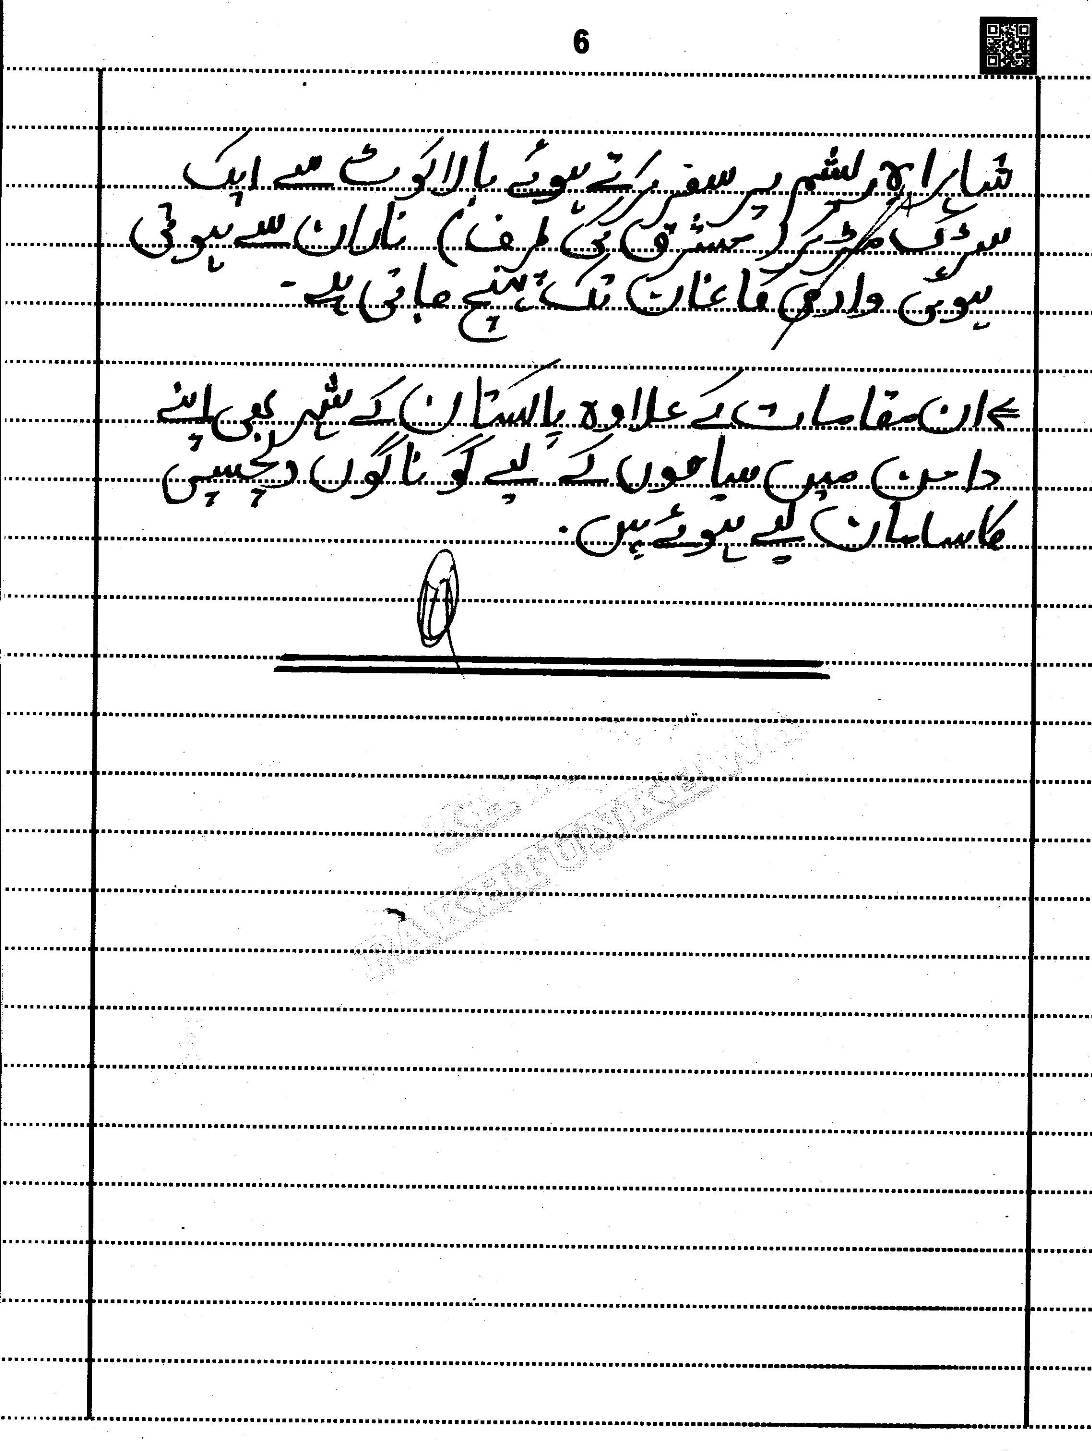 6
شاہراہ ریشم پر سفر کرتے ہوئے بالاکوٹ سے ایک
سڑک مڑ کر (مشرق کی طرف) ناران سے ہوتی
ہوئی وادی کاغان تک پہنچ جاتی ہے۔
ان مقامات کے علاوہ پاکستان کے شہر بھی اپنے
دامن میں سیاحوں کے لیے گوناگوں دلچسپی
کا سامان لیے ہوئے ہیں۔
PAKHTUNKHWA